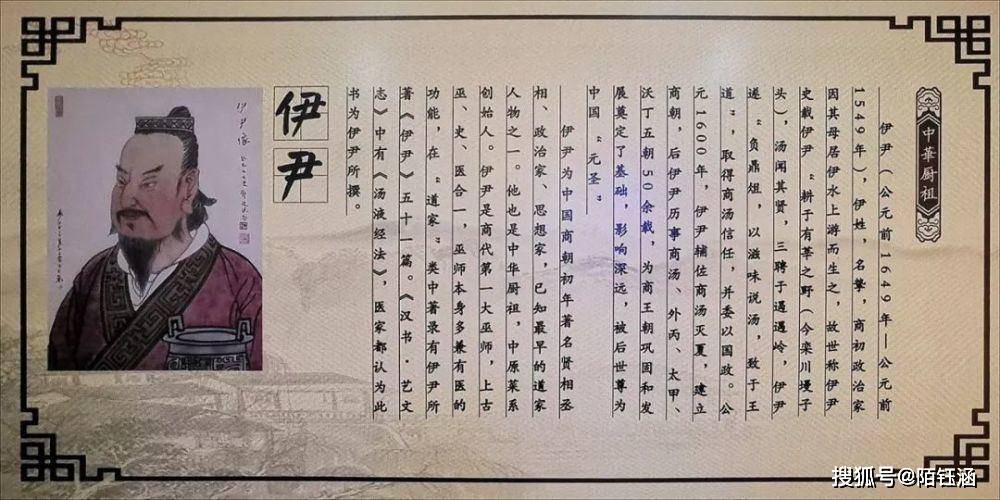 中華厨祖
伊尹（公元前1649年—公元前
1549年），伊姓，名挚，商初政治家
因其母居伊水上游而生之，故世称伊尹
史载伊尹“耕于有莘之野（今栾川墁子
头），汤闻其贤，三聘于遇遇岭，伊尹
遂“负鼎俎，以滋味说汤，致于王
道”，取得商汤信任，并委以国政。公
元1600年，伊尹辅佐商汤灭夏，建立
商朝，后伊尹历事商汤、外丙、太甲、
沃丁五朝50余载，为商王朝巩固和发
展奠定了基础，影响深远，被后世尊为
中国“元圣”
伊尹为中国商朝初年著名贤相丞
相、政治家、思想家，已知最早的道家
人物之一。他也是中华厨祖，中原菜系
创始人。伊尹是商代第一大巫师，上古
巫、史、医合一，巫师本身多兼有医的
功能，在“道家”类中著录有伊尹所
著《伊尹》五十一篇。《汉书·艺文
志》中有《汤液经法》，医家都认为此
书为伊尹所撰。
伊尹
伊尹像
搜狐号@陌钰涵